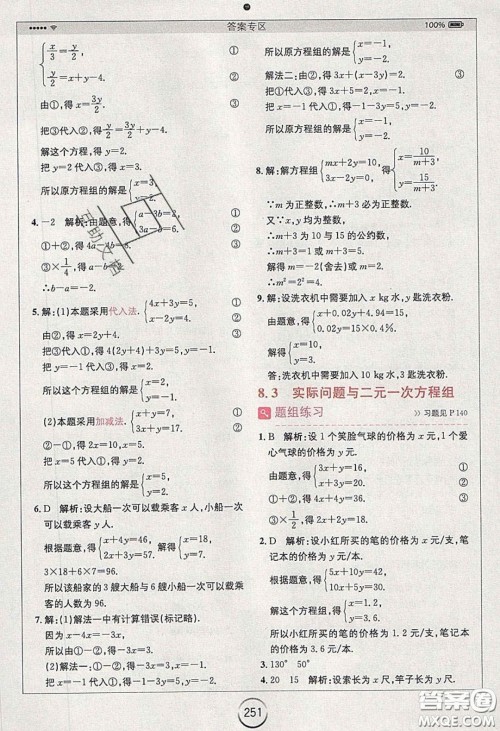 答案专区
100%
{x/3=y/2, ①
x/2=x+y-4. ②
由①,得x=3y/2. ③
把③代入②,得y/2=3y/2+y-4.
解这个方程,得y=2.
把y=2代入③,得x=3.
所以原方程组的解是{x=3,
y=2.
4. -2 解析:由题意,得{a-3b=2, ①
3a-b=6. ②
①+②,得4a-4b=8. ③
③×1/4,得a-b=2.
∴b-a=-2.
5. 解:(1)本题采用代入法. {4x+3y=5, ①
x-2y=4. ②
由②,得x=2y+4. ③
把③代入①,得4(2y+4)+3y=5.
解这个方程,得y=-1.
把y=-1代入③,得x=2.
所以原方程组的解是{x=2,
y=-1.
(2)本题采用加减法. {4x+3y=5, ①
2x-3y=-5. ②
①+②,得6x=0,x=0.
①-②×2,得9y=15,y=5/3.
所以原方程组的解是{x=0,
y=5/3.
6. D 解析:设大船一次可以载乘客x人,小船一次
可以载乘客y人.
根据题意,得{x+4y=46, 解得{x=18,
2x+3y=57. y=7.
3×18+6×7=96.
所以该船家的3艘大船与6艘小船一次可以载乘
客的人数为96.
7. 解:(1)解法一中有计算错误(标记略).
因为x-4x=-3x,
所以由①-②,得-3x=3.
(2)解法一:①-②,得-3x=3,x=-1.
把x=-1代入①,得-1-3y=5,y=-2.
所以原方程组的解是{x=-1,
y=-2.
解法二:由②,得3x+(x-3y)=2. ③
把①代入③,得3x+5=2,x=-1.
把x=-1代入①,得-1-3y=5,y=-2.
所以原方程组的解是{x=-1,
y=-2.
8. 解:解方程组{mx+2y=10, 得{x=10/(m+3),
3x-2y=0, y=15/(m+3).
∵m为正整数,∴m+3也为正整数.
又∵x,y均为整数,
∴m+3为10与15的公约数,
∴m+3=1或m+3=5.
解得m=-2(舍去)或m=2.
∴m²=2²=4.
9. 解:设洗衣机中需要加入x kg水,y匙洗衣粉.
由题意,得{x+0.02y+4.94=15,
0.02y=15×0.4%.
解得{x=10,
y=3.
答:洗衣机中需要加入10 kg水,3匙洗衣粉.
8.3 实际问题与二元一次方程组
题组练习
>习题见P140
1. B 解析:设1个笑脸气球的价格为x元,1个爱
心气球的价格为y元.
由题意,得{3x+y=16, ①
x+3y=20. ②
①+②,得4x+4y=36. ③
③×1/2,得2x+2y=18.
2. D 解析:设小红所买的笔的价格为x元/支,笔
记本的价格为y元/本.
由题意,得{5x+10y=42,
10x+5y=30.
解得{x=1.2,
y=3.6.
所以小红所买的笔的价格为1.2元/支,笔记本的
价格为3.6元/本.
3. 130° 50°
4. 20 15 解析:设索长为x尺,竿子长为y尺.
251
答案圈
MXQE.COM